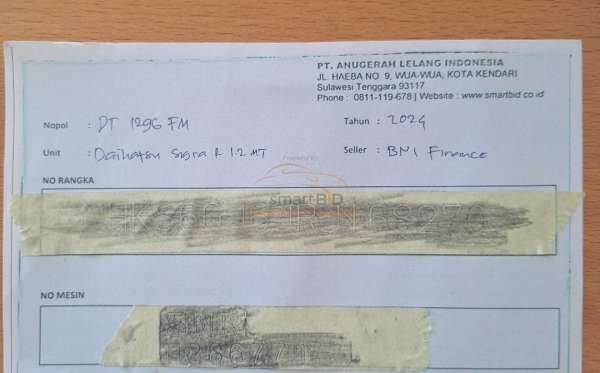 PT. ANUGERAH LELANG INDONESIA
JL. HAEBA NO 9, WUA-WUA, KOTA KENDARI
Sulawesi Tenggara 93117
Phone : 0811-119-678 | Website : www.smartbid.co.id
Nopol : DT 1296 FM Tahun : 2024
Unit : Daihatsu Sigra R 1.2 MT Seller : BNI Finance
Powered By
NO RANGKA
smartBID
NO MESIN